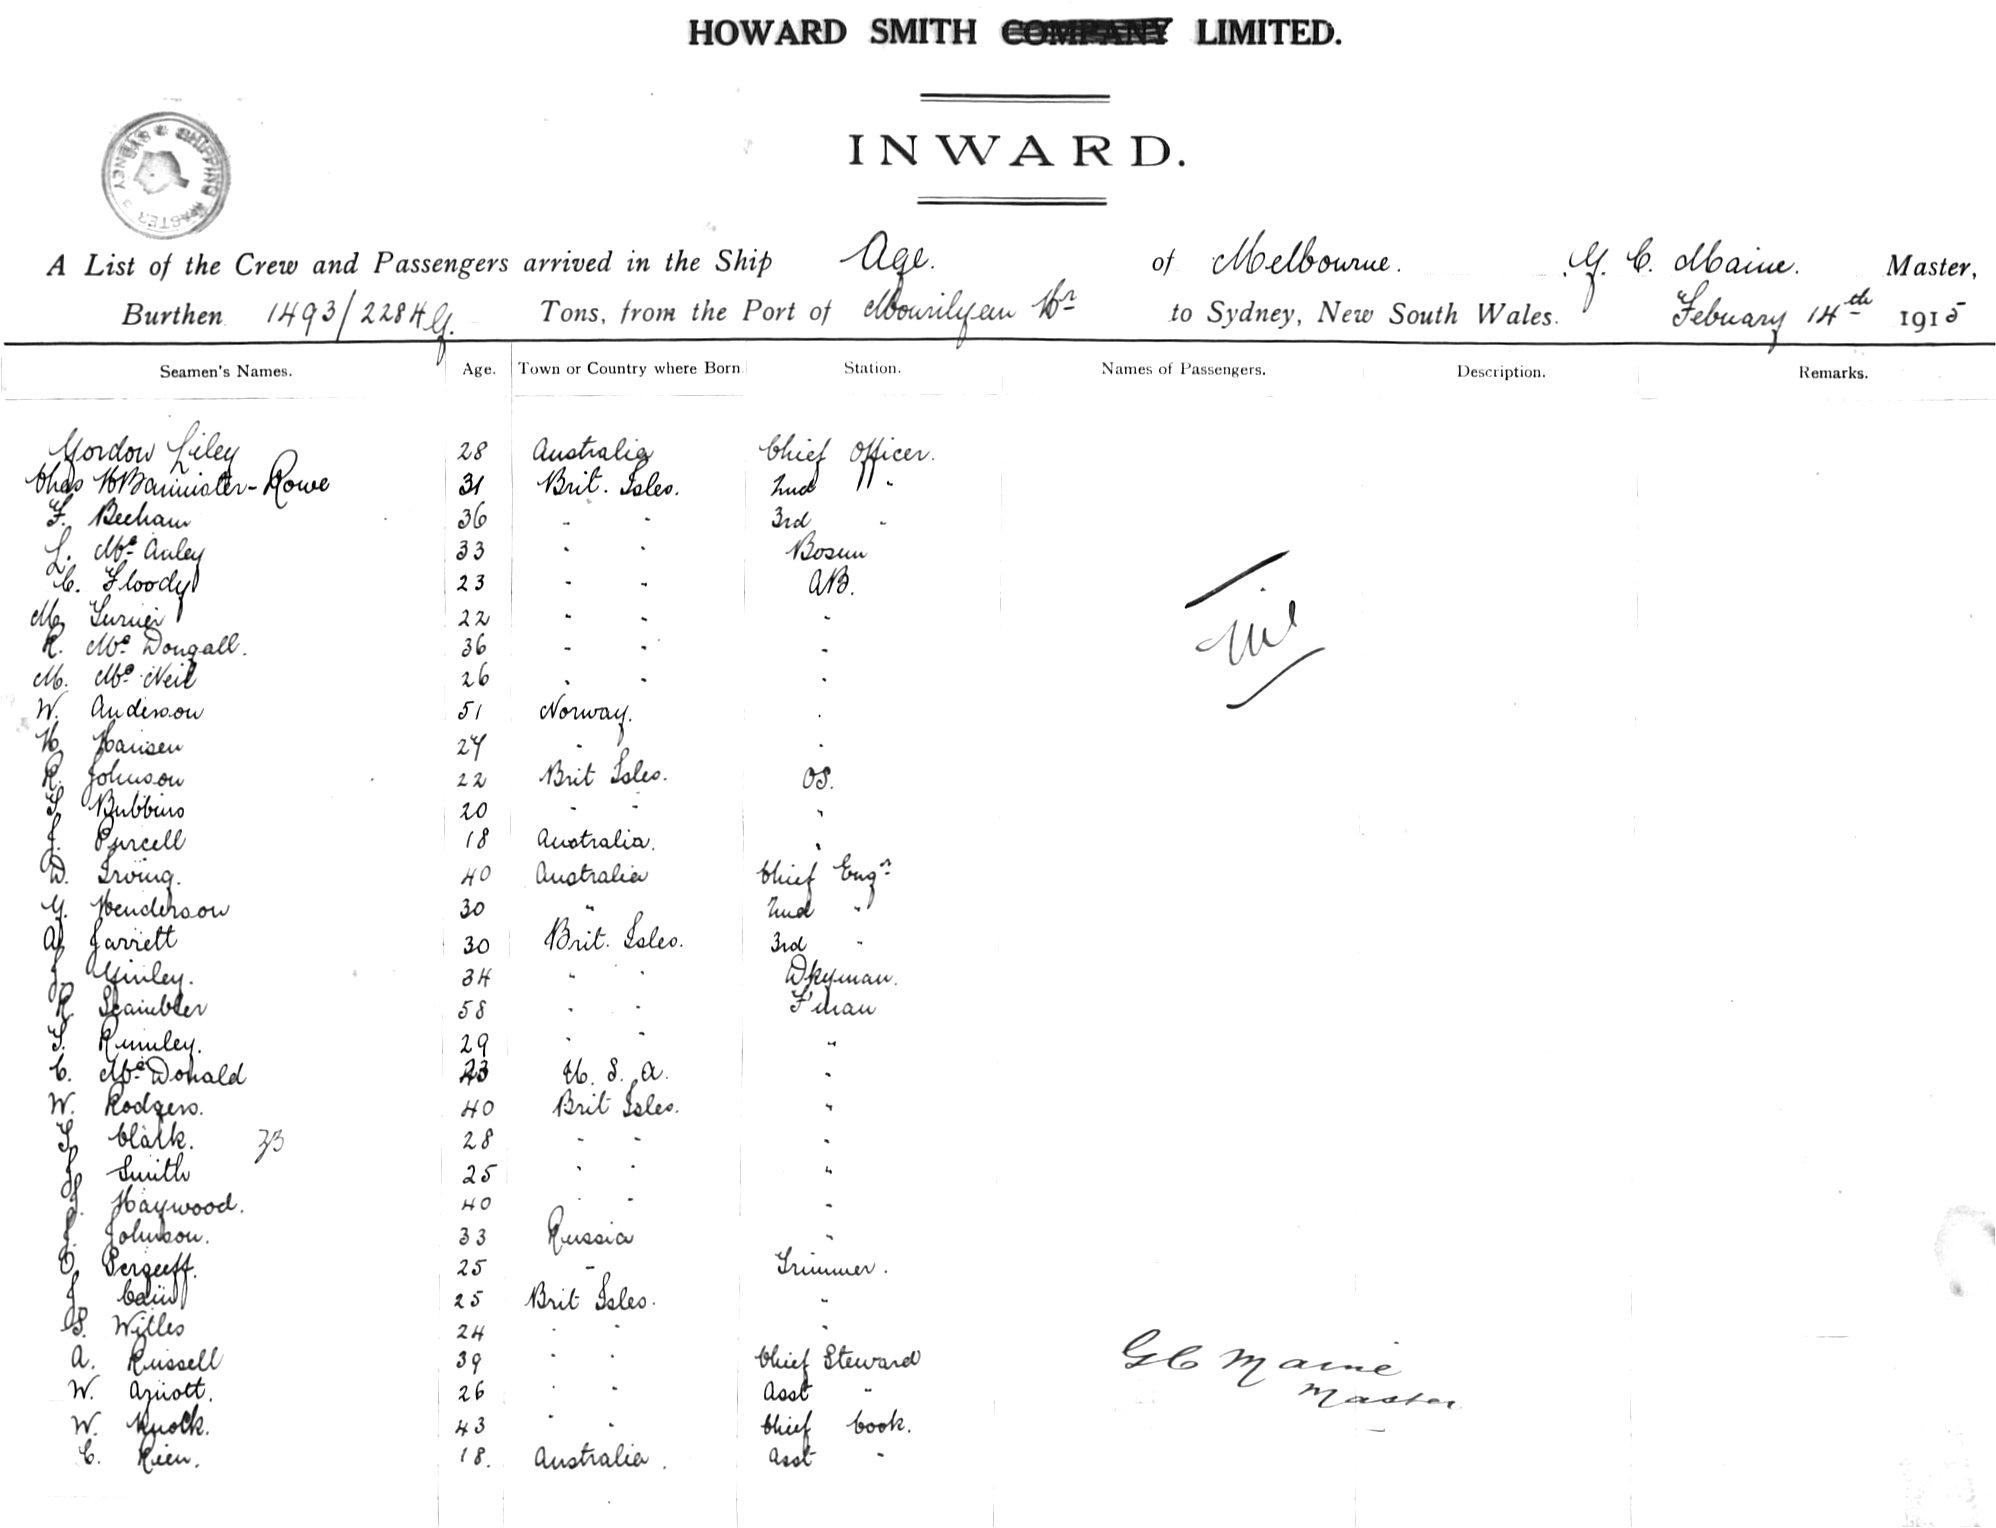 HOWARD SMITH COMPANY LIMITED.
INWARD.
SHIPPING MASTER SYDNEY
A List of the Crew and Passengers arrived in the Ship Age. of Melbourne. G. C. Maine. Master,
Burthen 1493/2284 G. Tons, from the Port of Mourilyan Hr to Sydney, New South Wales. Febuary 14th 1915
Seamen's Names. Age. Town or Country where Born. Station. Names of Passengers. Description. Remarks.
Gordon Liley 28 Australia Chief Officer.
Chas H Bannister-Rowe 31 Brit. Isles. 2nd "
F. Beeham 36 " " 3rd "
L. Mc Auley 33 " " Bosun
C. Floody 23 " " AB.
M. Turner 22 " " "
R. Mc Dougall. 36 " " "
M. Mc Neil 26 " " "
Nil
W. Anderson 51 Norway. "
H. Hansen 27 " "
R. Johnson 22 Brit Isles. OS.
T. Bubbins 20 " " "
J. Purcell 18 Australia. "
D. Irving. 40 Australia Chief Engr
G. Henderson 30 " 2nd "
A. Jarrett 30 Brit. Isles. 3rd "
J. Ginley. 34 " " Dkyman.
R. Scambler 58 " " F'man
T. Rumley. 29 " " "
C. McDonald 23 U. S. A. "
W. Rodgers. 40 Brit Isles. "
T. Clark. 33 28 " " "
J. Smith 25 " " "
T. Haywood. 40 " " "
J. Johnson. 33 Russia "
O. 25 " Trimmer.
J. Cain 25 Brit Isles. "
S. Willes 24 " " "
A. Russell 39 " " Chief Steward
G C Maine
W. Arnott. 26 " " Asst "
Master
W. Knock. 43 " " Chief Cook.
C. 18. Australia. Asst "